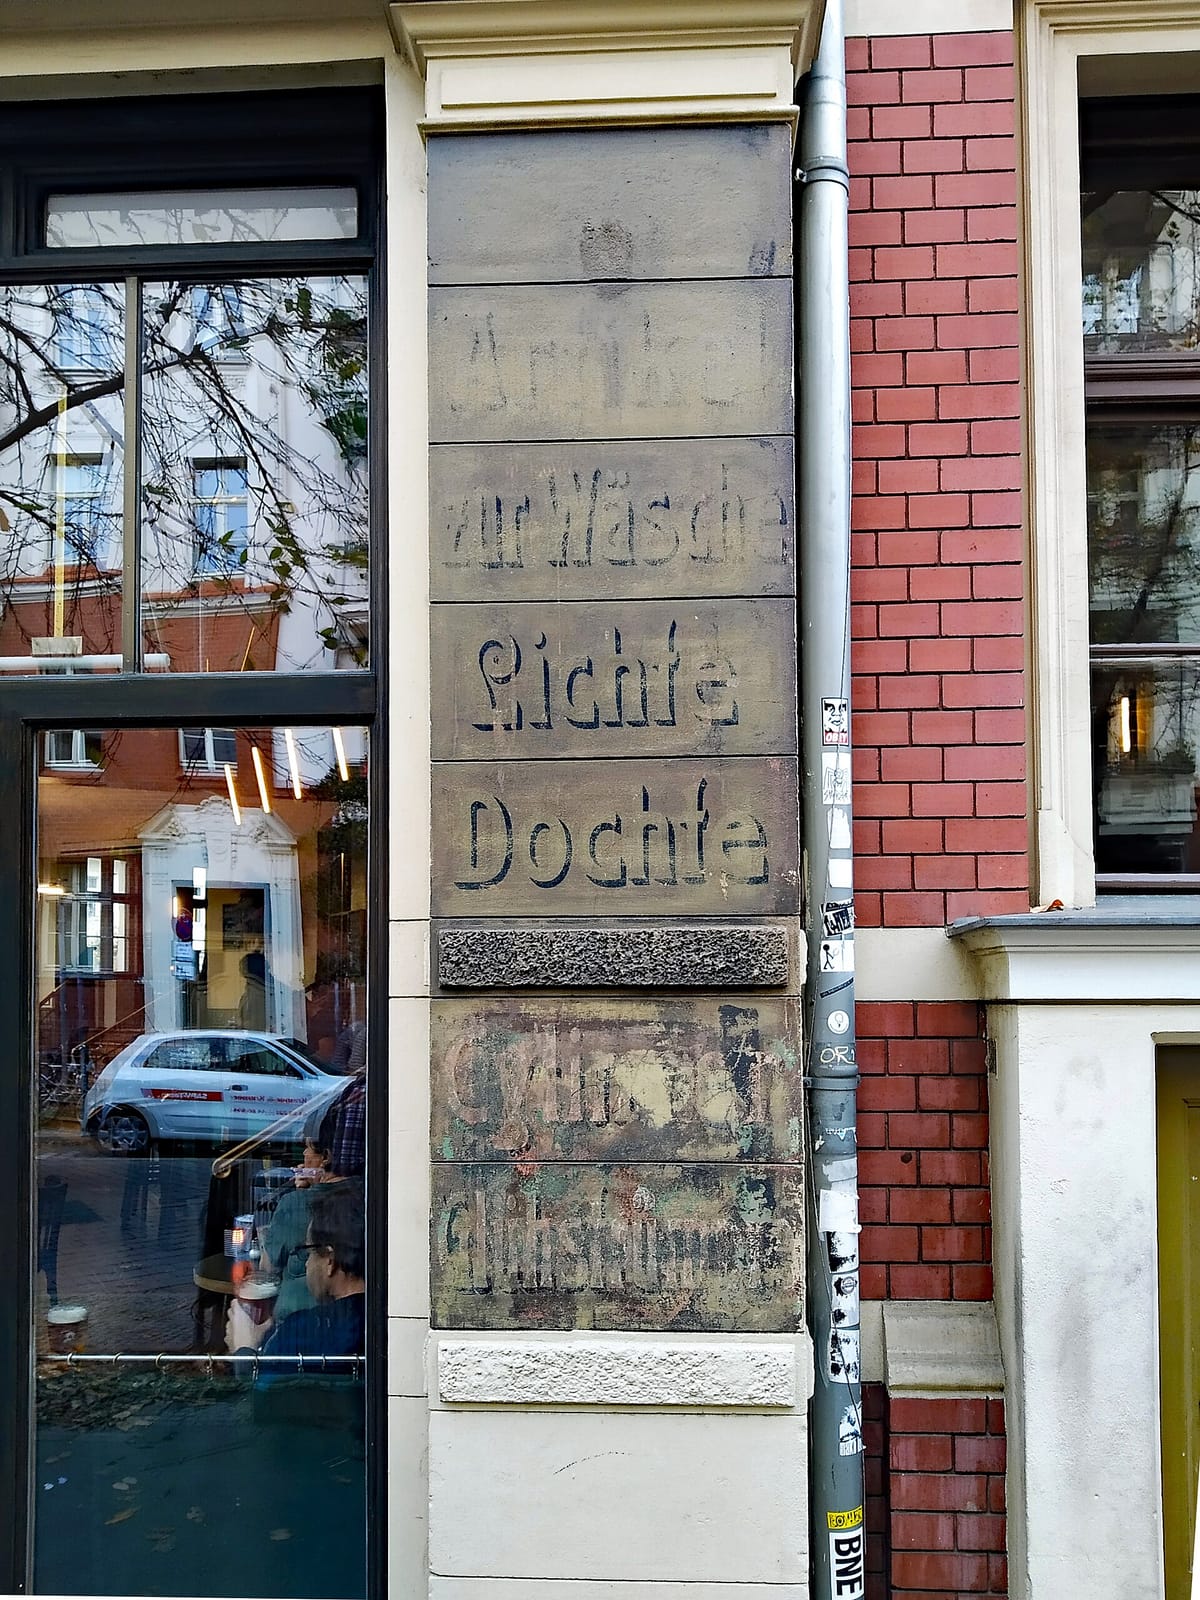 Artikel
zur Wäsche
Lichte
Dochte
Cylinder
Glühstrümpfe
OBEY
OR
BNE